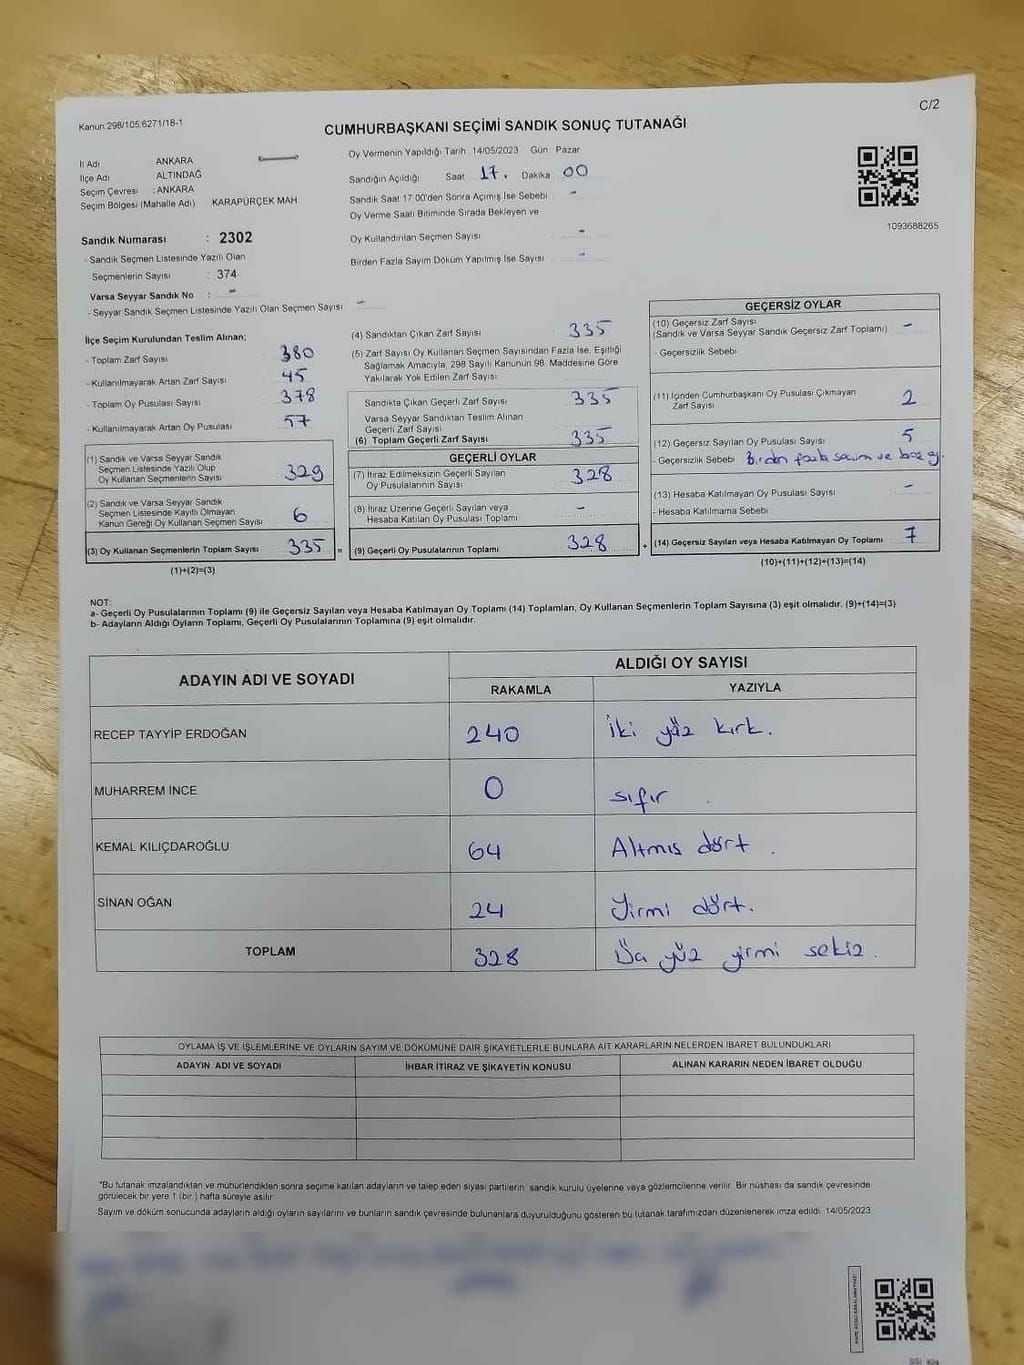 C/2
Kanun.298/105;6271/18-1
CUMHURBAŞKANI SEÇİMİ SANDIK SONUÇ TUTANAĞI
İl Adı ANKARA
İlçe Adı ALTINDAĞ
Seçim Çevresi : ANKARA
Seçim Bölgesi (Mahalle Adı) KARAPÜRÇEK MAH
Oy Vermenin Yapıldığı Tarih 14/05/2023 Gün Pazar
Sandığın Açıldığı Saat 17. Dakika 00
Sandık Saat 17.00'den Sonra Açımış İse Sebebi -
Oy Verme Saati Bitiminde Sırada Bekleyen ve
Oy Kullandırılan Seçmen Sayısı -
Birden Fazla Sayım Döküm Yapılmış İse Sayısı -
1093688265
Sandık Numarası : 2302
- Sandık Seçmen Listesinde Yazılı Olan
Seçmenlerin Sayısı : 374
Varsa Seyyar Sandık No : -
- Seyyar Sandık Seçmen Listesinde Yazılı Olan Seçmen Sayısı -
İlçe Seçim Kurulundan Teslim Alınan;
- Toplam Zarf Sayısı 380
- Kullanılmayarak Artan Zarf Sayısı 45
- Toplam Oy Pusulası Sayısı 378
- Kullanılmayarak Artan Oy Pusulası 57
(1) Sandık ve Varsa Seyyar Sandık
Seçmen Listesinde Yazılı Olup
Oy Kullanan Seçmenlerin Sayısı 329
(2) Sandık ve Varsa Seyyar Sandık
Seçmen Listesinde Kayıtlı Olmayan
Kanun Gereği Oy Kullanan Seçmen Sayısı 6
(3) Oy Kullanan Seçmenlerin Toplam Sayısı 335 =
(1)+(2)=(3)
(4) Sandıktan Çıkan Zarf Sayısı 335
(5) Zarf Sayısı Oy Kullanan Seçmen Sayısından Fazla İse, Eşitliği
Sağlamak Amacıyla, 298 Sayılı Kanunun 98. Maddesine Göre
Yakılarak Yok Edilen Zarf Sayısı
Sandıkta Çıkan Geçerli Zarf Sayısı 335
Varsa Seyyar Sandıktan Teslim Alınan
Geçerli Zarf Sayısı
(6) Toplam Geçerli Zarf Sayısı 335
GEÇERLİ OYLAR
(7) İtiraz Edilmeksizin Geçerli Sayılan
Oy Pusulalarının Sayısı 328
(8) İtiraz Üzerine Geçerli Sayılan veya
Hesaba Katılan Oy Pusulası Toplamı -
(9) Geçerli Oy Pusulalarının Toplamı 328 +
GEÇERSİZ OYLAR
(10) Geçersiz Zarf Sayısı
(Sandık ve Varsa Seyyar Sandık Geçersiz Zarf Toplamı) -
- Geçersizlik Sebebi
(11) İçinden Cumhurbaşkanı Oy Pusulası Çıkmayan
Zarf Sayısı 2
(12) Geçersiz Sayılan Oy Pusulası Sayısı 5
- Geçersizlik Sebebi Birden fazla seçim ve boş
(13) Hesaba Katılmayan Oy Pusulası Sayısı -
- Hesaba Katılmama Sebebi
(14) Geçersiz Sayılan veya Hesaba Katılmayan Oy Toplamı 7
(10)+(11)+(12)+(13)=(14)
NOT:
a- Geçerli Oy Pusulalarının Toplamı (9) ile Geçersiz Sayılan veya Hesaba Katılmayan Oy Toplamı (14) Toplamları, Oy Kullanan Seçmenlerin Toplam Sayısına (3) eşit olmalıdır. (9)+(14)=(3)
b- Adayların Aldığı Oyların Toplamı, Geçerli Oy Pusulalarının Toplamına (9) eşit olmalıdır.
ADAYIN ADI VE SOYADI ALDIĞI OY SAYISI
RAKAMLA YAZIYLA
RECEP TAYYİP ERDOĞAN 240 İki yüz kırk.
MUHARREM İNCE 0 sıfır .
KEMAL KILIÇDAROĞLU 64 Altmış dört .
SİNAN OĞAN 24 Yirmi dört.
TOPLAM 328 Üç yüz yirmi sekiz .
OYLAMA İŞ VE İŞLEMLERİNE VE OYLARIN SAYIM VE DÖKÜMÜNE DAİR ŞİKAYETLERLE BUNLARA AİT KARARLARIN NELERDEN İBARET BULUNDUKLARI
ADAYIN ADI VE SOYADI İHBAR İTİRAZ VE ŞİKAYETİN KONUSU ALINAN KARARIN NEDEN İBARET OLDUĞU
"Bu tutanak imzalandıktan ve mühürlendikten sonra seçime katılan adayların ve talep eden siyasi partilerin, sandık kurulu üyelerine veya gözlemcilerine verilir. Bir nüshası da sandık çevresinde
görülecek bir yere 1 (bir ) hafta süreyle asılır.
Sayım ve döküm sonucunda adayların aldığı oyların sayılarını ve bunların sandık çevresinde bulunanlara duyurulduğunu gösteren bu tutanak tarafımızdan düzenlenerek imza edildi. 14/05/2023